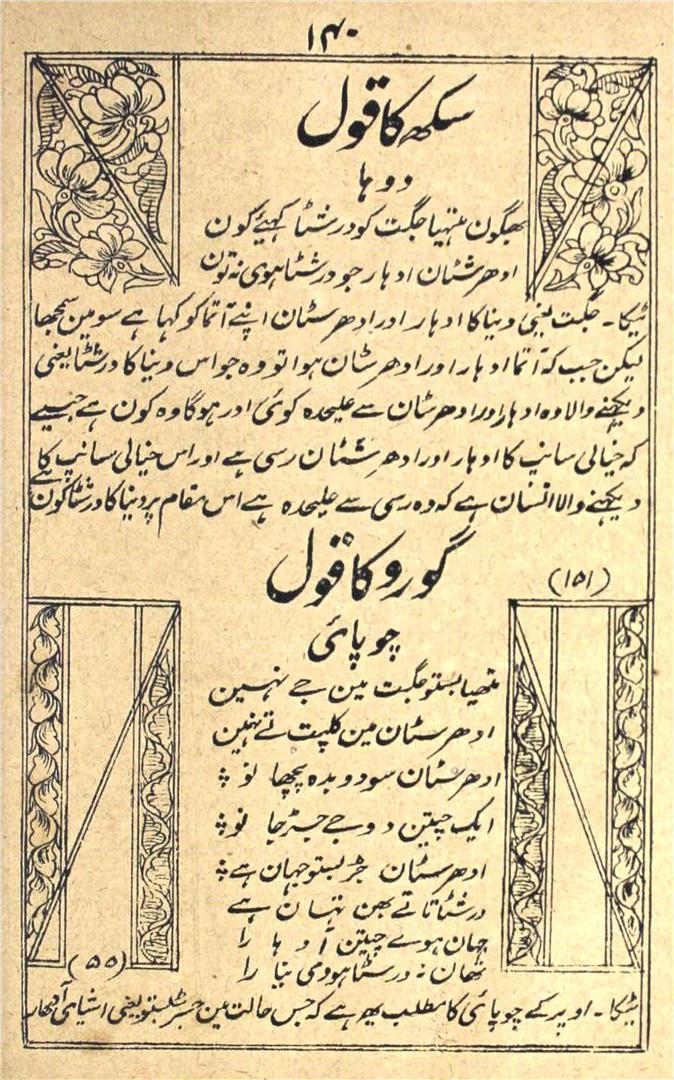 ۱۴۰
سکھ کا قول
دوہا
بھگون متھیا جگت کو درشٹا کہیئے کون
ادھرشٹان ادہار جو درشٹا ہوی نہ تون
ٹیکا۔ جگت یعنی دنیا کا ادہار اور ادھرسٹان اپنے آتما کو کہا ہے سو مین سمجھا
لیکن جب کہ آتما ادہار اور ادھرسٹان ہوا تو وہ جو اس دنیا کا درشٹا یعنی
دیکہنے والا وہ ادہار اور ادھرسٹان سے علیحدہ کوئی اور ہوگا وہ کون ہے جیسے
کہ خیالی سانپ کا ادہار اور ادھرشٹان رسی ہے اور اس خیالی سانپ کا
دیکہنے والا انسان ہے کہ وہ رسی سے علیحدہ ہے اس مقام پر دنیا کا درشٹا کون ہے
گورو کا قول
(۱۵۱)
چوپائی
متھیا بستو جگت مین جے نہین
ادھرسٹان مین کلپت تے نہین
ادھرسٹان سو دو بدہ پچھا نو ؞
ایک چیتن دوجے جڑ جا نو ؞
ادھرسٹان جڑ بستو جہان ہے ؞
درشٹا تاتے بھن تہان ہے
جہان ہوے چیتن آدہا را
تھان نہ درسٹا ہووی نیا را
(۵۵)
ٹیکا۔ اوپر کے چوپائی کا مطلب یہ ہے کہ جس حالت مین جڑ بستو یعنی اشیاہی